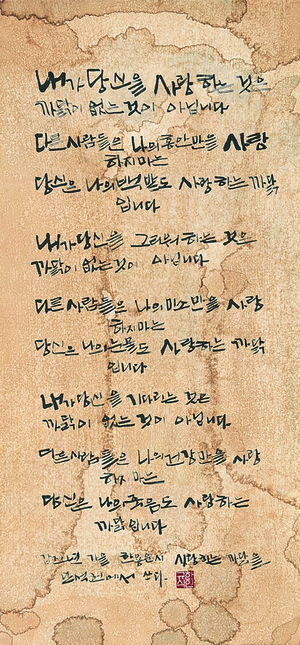 내가 당신을 사랑하는 것은
까닭이 없는 것이 아닙니다
다른 사람들은 나의 홍안만을 사랑
하지마는
당신은 나의 백발도 사랑하는 까닭
입니다
내가 당신을 그리워하는 것은
까닭이 없는 것이 아닙니다
다른 사람들은 나의 미소만을 사랑
하지마는
당신은 나의 눈물도 사랑하는 까닭
입니다
내가 당신을 기다리는 것은
까닭이 없는 것이 아닙니다
다른 사람들은 나의 건강만을 사랑
하지마는
당신은 나의 죽음도 사랑하는
까닭입니다
가을 한용운시 사랑하는 까닭을
에서 쓰다.